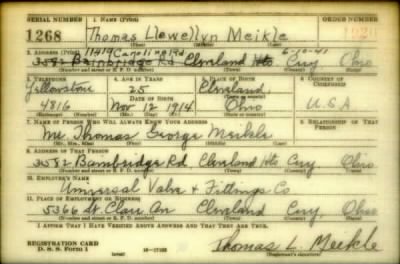 SERIAL NUMBER 1. NAME (Print) ORDER NUMBER
1268 Thomas Llewellyn Meikle
(First) (Middle) (Last)
2. ADDRESS (Print) 11419 6-10-41
3582 Bainbridge Rd Cleveland Hts Cuy. Ohio
(Number and street or R. F. D. number) (Town) (County) (State)
3. TELEPHONE 4. AGE IN YEARS 5. PLACE OF BIRTH 6. COUNTRY OF CITIZENSHIP
Yellowstone 25 Cleveland
DATE OF BIRTH
4816 Nov 12 1914 Ohio U.S.A
7. NAME OF PERSON WHO WILL ALWAYS KNOW YOUR ADDRESS 8. RELATIONSHIP OF THAT PERSON
Mr. Thomas George Meikle
(Mr., Mrs., Miss) (First) (Middle) (Last)
9. ADDRESS OF THAT PERSON
3582 Bainbridge Rd. Cleveland Hts Cuy Ohio
(Number and street or R. F. D. number) (Town) (County) (State)
10. EMPLOYER'S NAME
Universal Valve & Fittings Co
11. PLACE OF EMPLOYMENT OR BUSINESS
5366 St. Clair Av Cleveland Cuy Ohio
(Number and street or R. F. D. number) (Town) (County) (State)
I AFFIRM THAT I HAVE VERIFIED ABOVE ANSWERS AND THAT THEY ARE TRUE.
REGISTRATION CARD
D. S. S. Form 1 Thomas L. Meikle
(Registrant's signature)